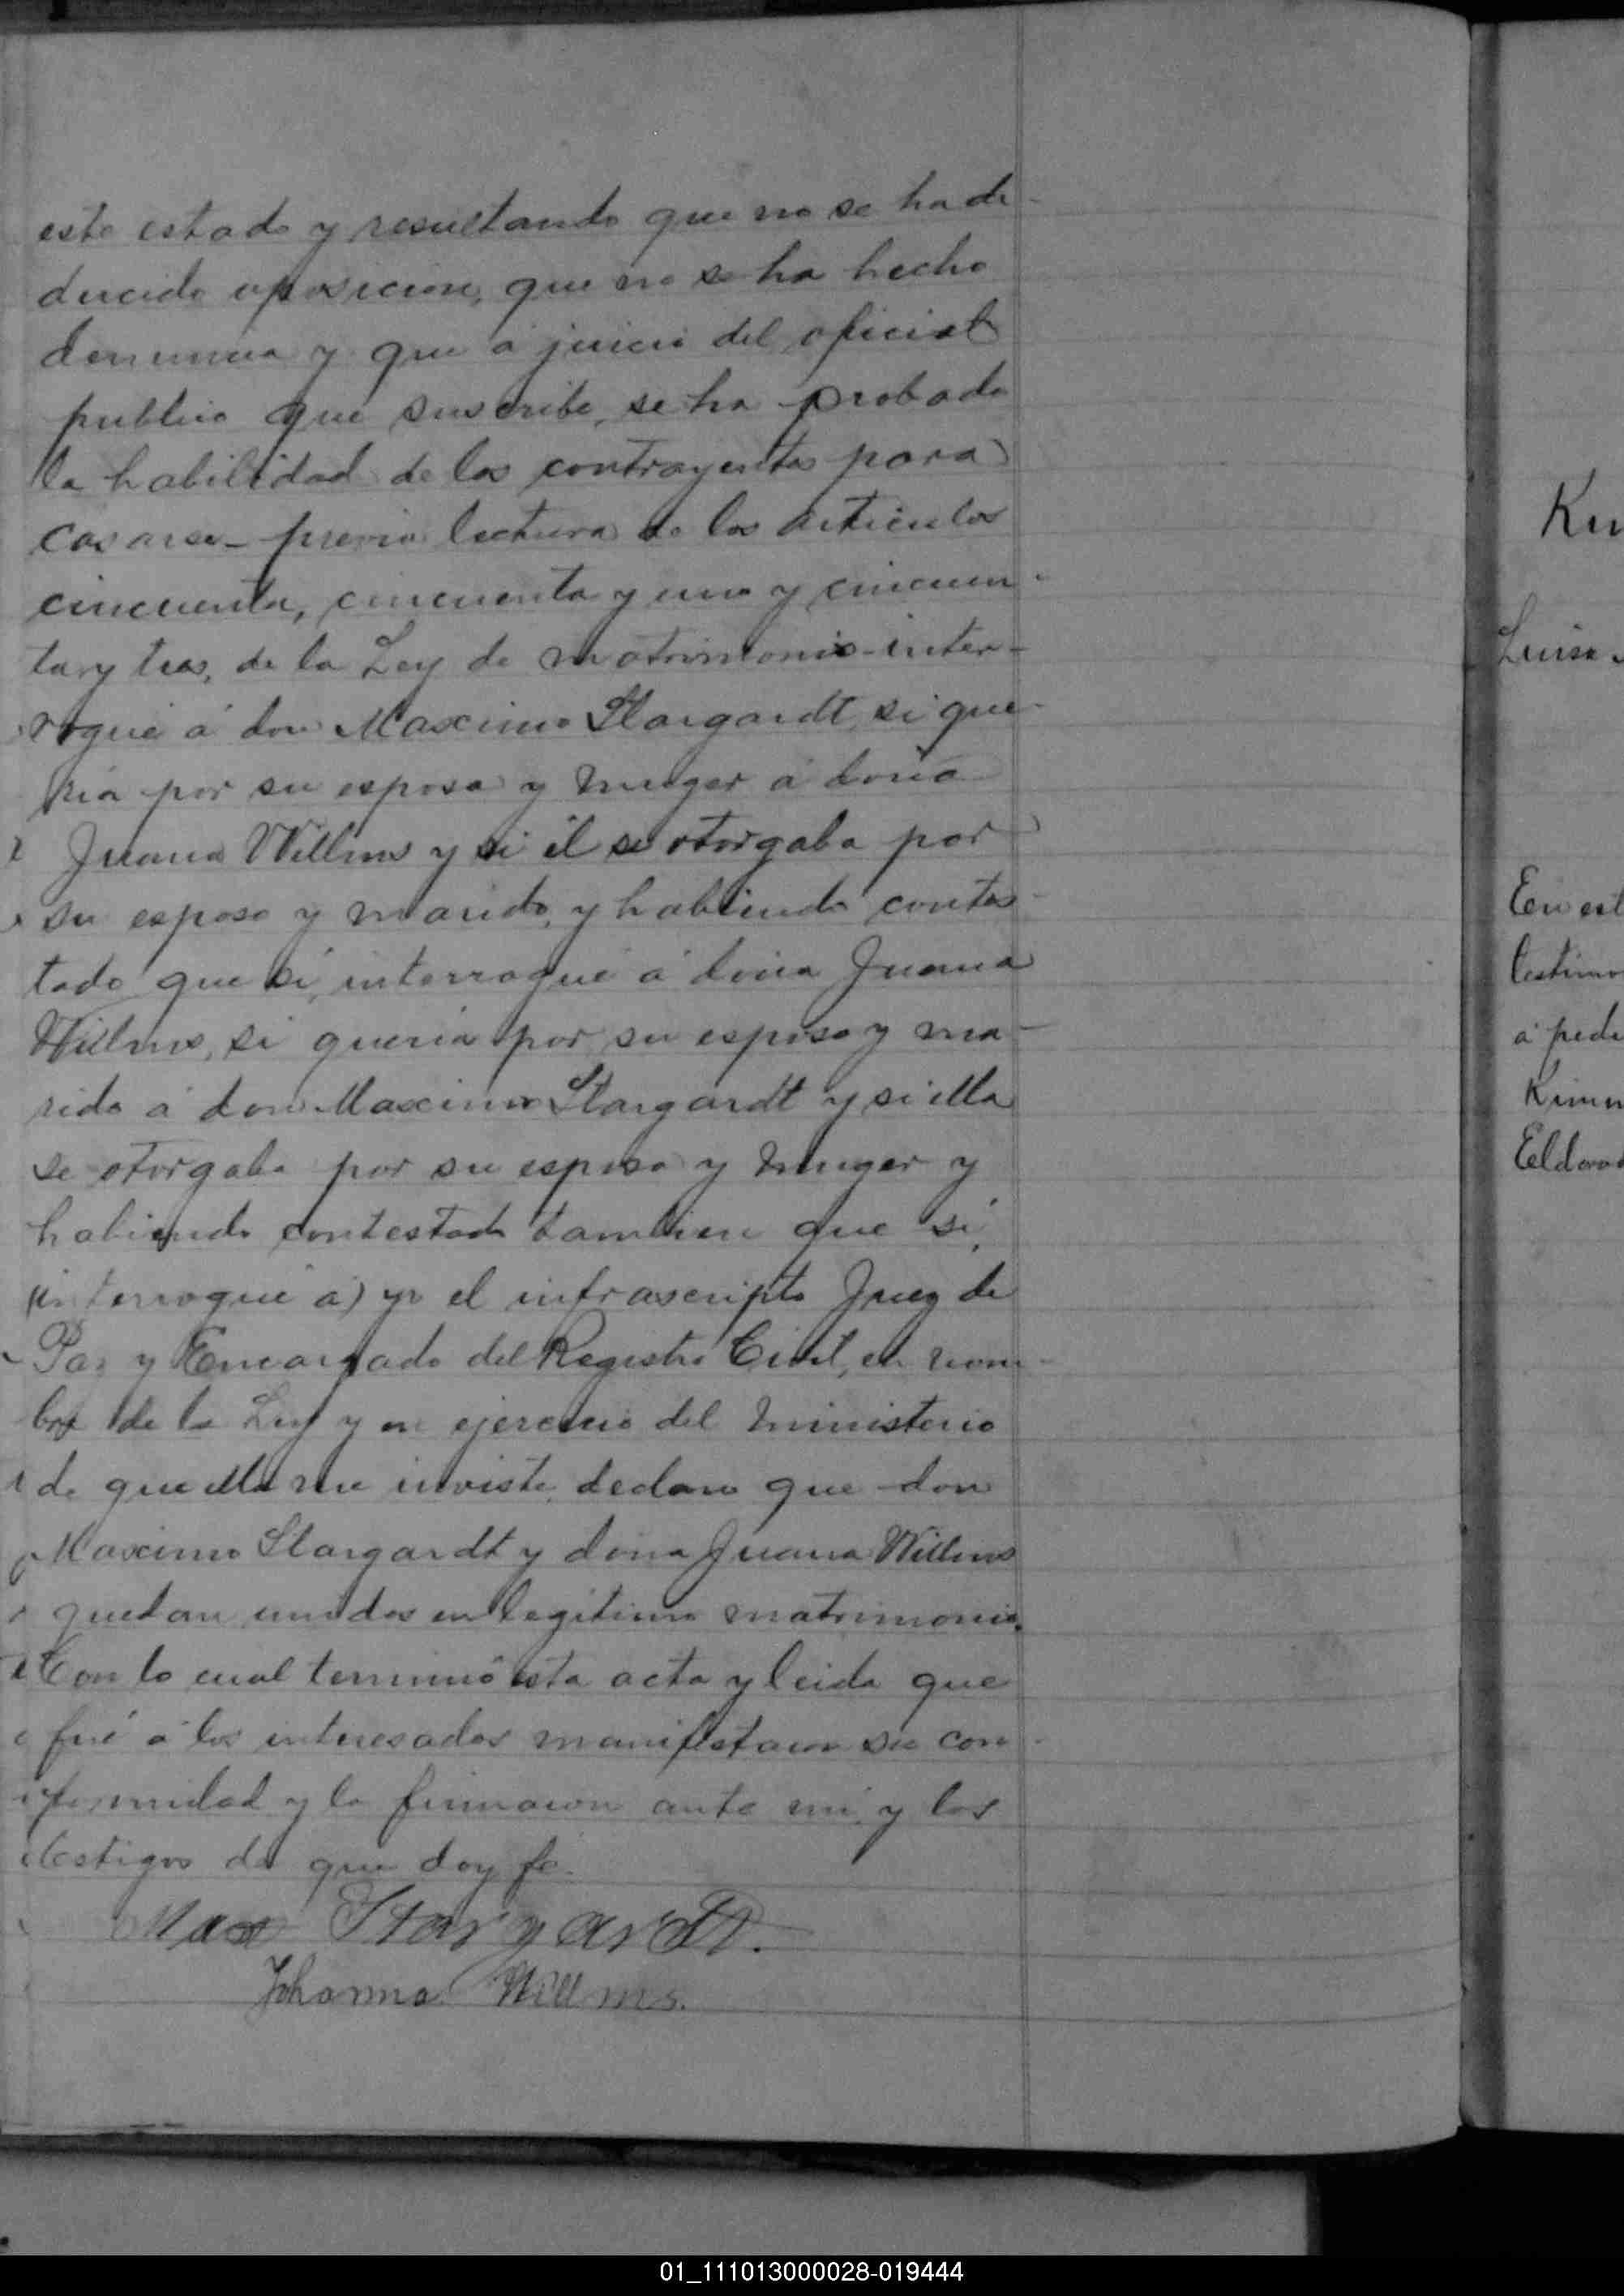 este estado y resultando que no se ha de-
ducido oposicion, que no se ha hecho
denuncia y que á juicio del oficial
publico que suscribe, se ha probado
la habilidad de los contrayentes para
casarse - previa lectura de los articulos
cincuenta, cincuenta y uno y cincuen-
ta y tres, de la Ley de matrimonio - inter-
rogué á don Maximo Stargardt, si que-
ria por su esposa y muger á doña
Juana Willms y si él se otorgaba por
su esposo y marido, y habiendo contes-
tado que sí, interrogué á doña Juana
Willms, si queria por su esposo y ma-
rido á don Maximo Stargardt y si ella
se otorgaba por su esposa y muger y
habiendo contestado tambien que sí,
(interrogué á) yo el infrascripto Juez de
Paz y Encargado del Registro Civil, en nom-
bre de la Ley y en ejercicio del ministerio
de que ella me inviste, declaro que don
Maximo Stargardt y doña Juana Willms
quedan unidos en legitimo matrimonio.
Con lo cual terminó esta acta y leida que
fué á los interesados manifestaron su con-
formidad y la firmaron ante mi y los
testigos de que doy fé.
Max Stargardt.
Johanna Willms.
Ku
Luisa
En est
testimo
á pedi
Kimm
Eldorad
01_111013000028-019444